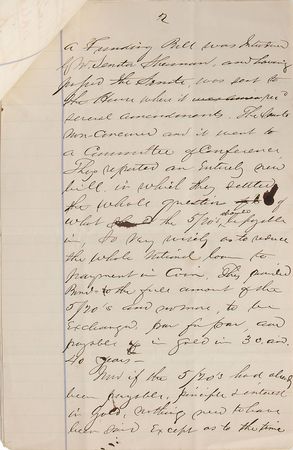 2
a Funding Bill was Introduced
by Senator Sherman, and having
passed the Senate, was sent to
the House where it was amen rec'd
several amendments. The Senate
non-concurred and it went to
a Committee of Conference
They reported an Entirely new
bill, in which they settled
the whole question of
what the 5/20's, should be payable
in, so very wisely as to reduce
the whole National loan to
payment in Coin. They provided
Bonds to the full amount of the
5/20's and no more, to be
Exchanged, par for par, and
payable in gold in 30, and
40 years —
Now if the 5/20's had already
been payable, principle & interest
in Gold, nothing new to have
been said Except as to the time